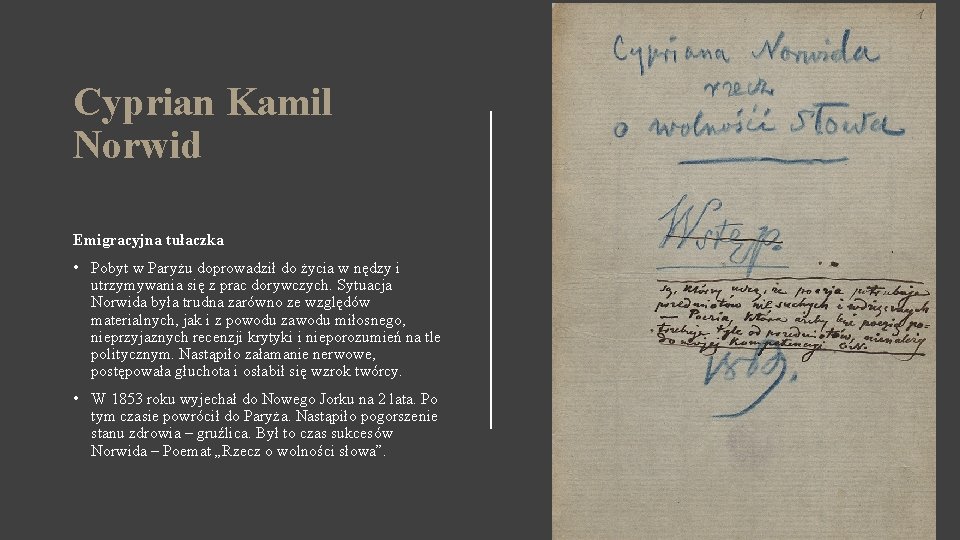 Cyprian Kamil
Norwid
Emigracyjna tułaczka
• Pobyt w Paryżu doprowadził do życia w nędzy i
utrzymywania się z prac dorywczych. Sytuacja
Norwida była trudna zarówno ze względów
materialnych, jak i z powodu zawodu miłosnego,
nieprzyjaznych recenzji krytyki i nieporozumień na tle
politycznym. Nastąpiło załamanie nerwowe,
postępowała głuchota i osłabił się wzrok twórcy.
• W 1853 roku wyjechał do Nowego Jorku na 2 lata. Po
tym czasie powrócił do Paryża. Nastąpiło pogorszenie
stanu zdrowia – gruźlica. Był to czas sukcesów
Norwida – Poemat „Rzecz o wolności słowa”.
1
Cypriana Norwida
rzecz
o wolności Słowa
Wstęp.
są, którzy uczą, że poezja potrzebuje
przedmiotów nie suchych i
— Poezja, która aby być poezją po-
trzebuje tyle od przedmiotów, nienależy
do mojej kompetencji C.N.
1869.